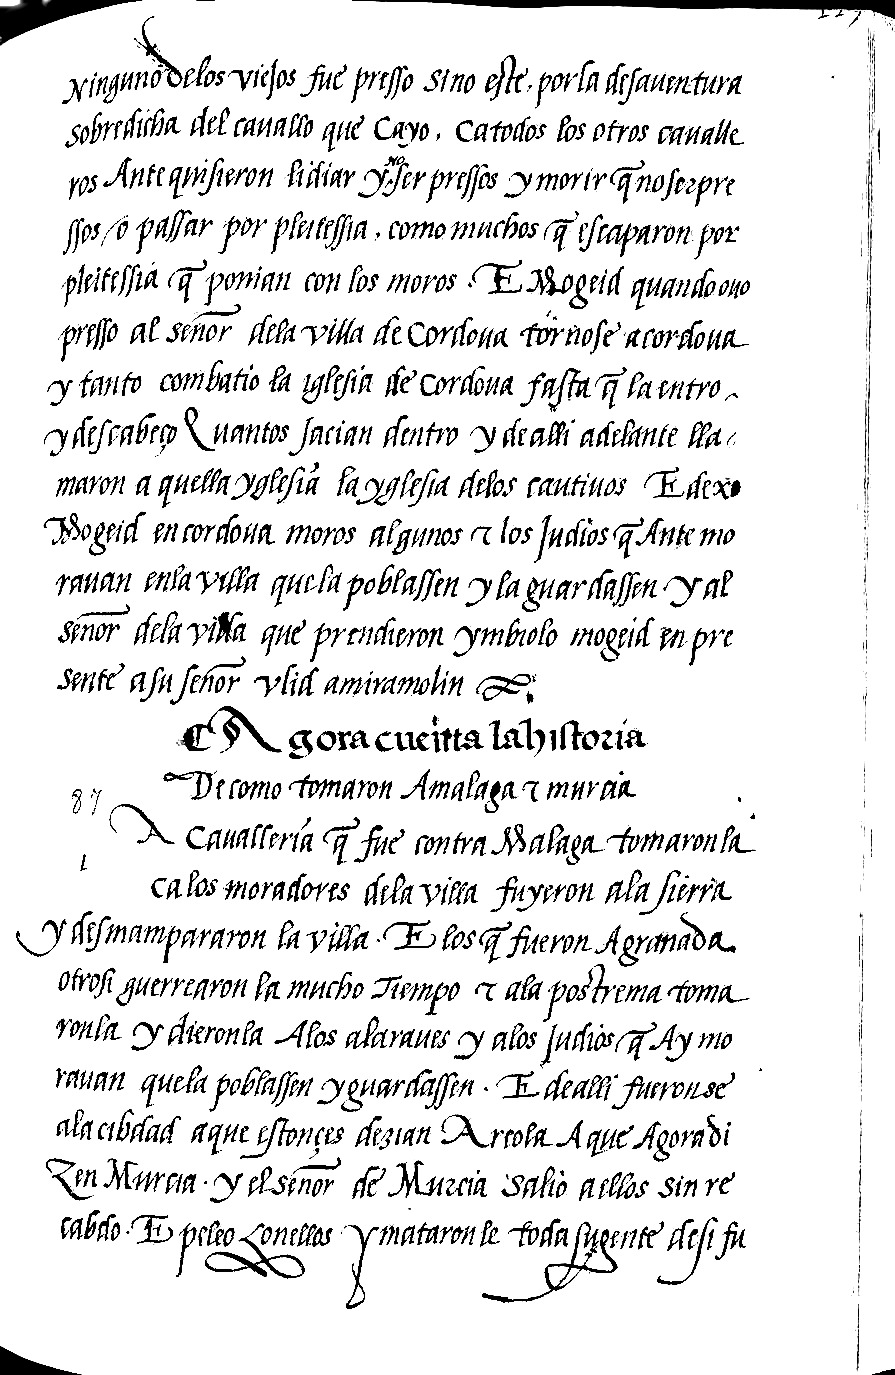 Ninguno delos viejos fue presso sino este, por la desaventura
sobredicha del cavallo que Cayo, Ca todos los otros cavalle
ros Ante quisieron lidiar y no ser pressos y morir q̃ no ser pre
ssos / o passar por pleitessia, como muchos q̃ escaparon por
pleitessia q̃ ponian con los moros. E Mogeid quando ovo
presso al señor dela villa de Cordoua tornose a cordoua
y tanto combatio la iglesia de cordoua fasta q̃ la entro
y descabeço Quantos Jacian dentro y de alli adelante lla
maron a quella yglesia la yglesia delos cautiuos E dexo
Mogeid en cordoua moros algunos τ los Judios q̃ Ante mo
rauan en la villa que la poblassen y la guardassen. y al
señor dela villa que prendieron ymbiolo mogeid en pre
sente a su señor vlid amiramolin
Agora cuentta la historia
De como tomaron A malaga τ murcia
87
A Cauallería q̃ fue contra Malaga tomaron la
1
ca los moradores dela villa fuyeron ala sierra
y desmampararon la villa. E los q̃ fueron A granada
otrosi guerrearon la mucho Tiempo τ ala postrema toma
ronla y dieronla Alos alaraues y alos Judios q̃ Ay mo
rauan que la poblassen y guardassen. E de alli fueronse
ala cibdad a que estonçes dezian Arcola A que Agora di
Zen Murcia. y el señor de Murcia salio a ellos sin re
cabdo. E peleo Conellos y mataronle toda su gente desi fu